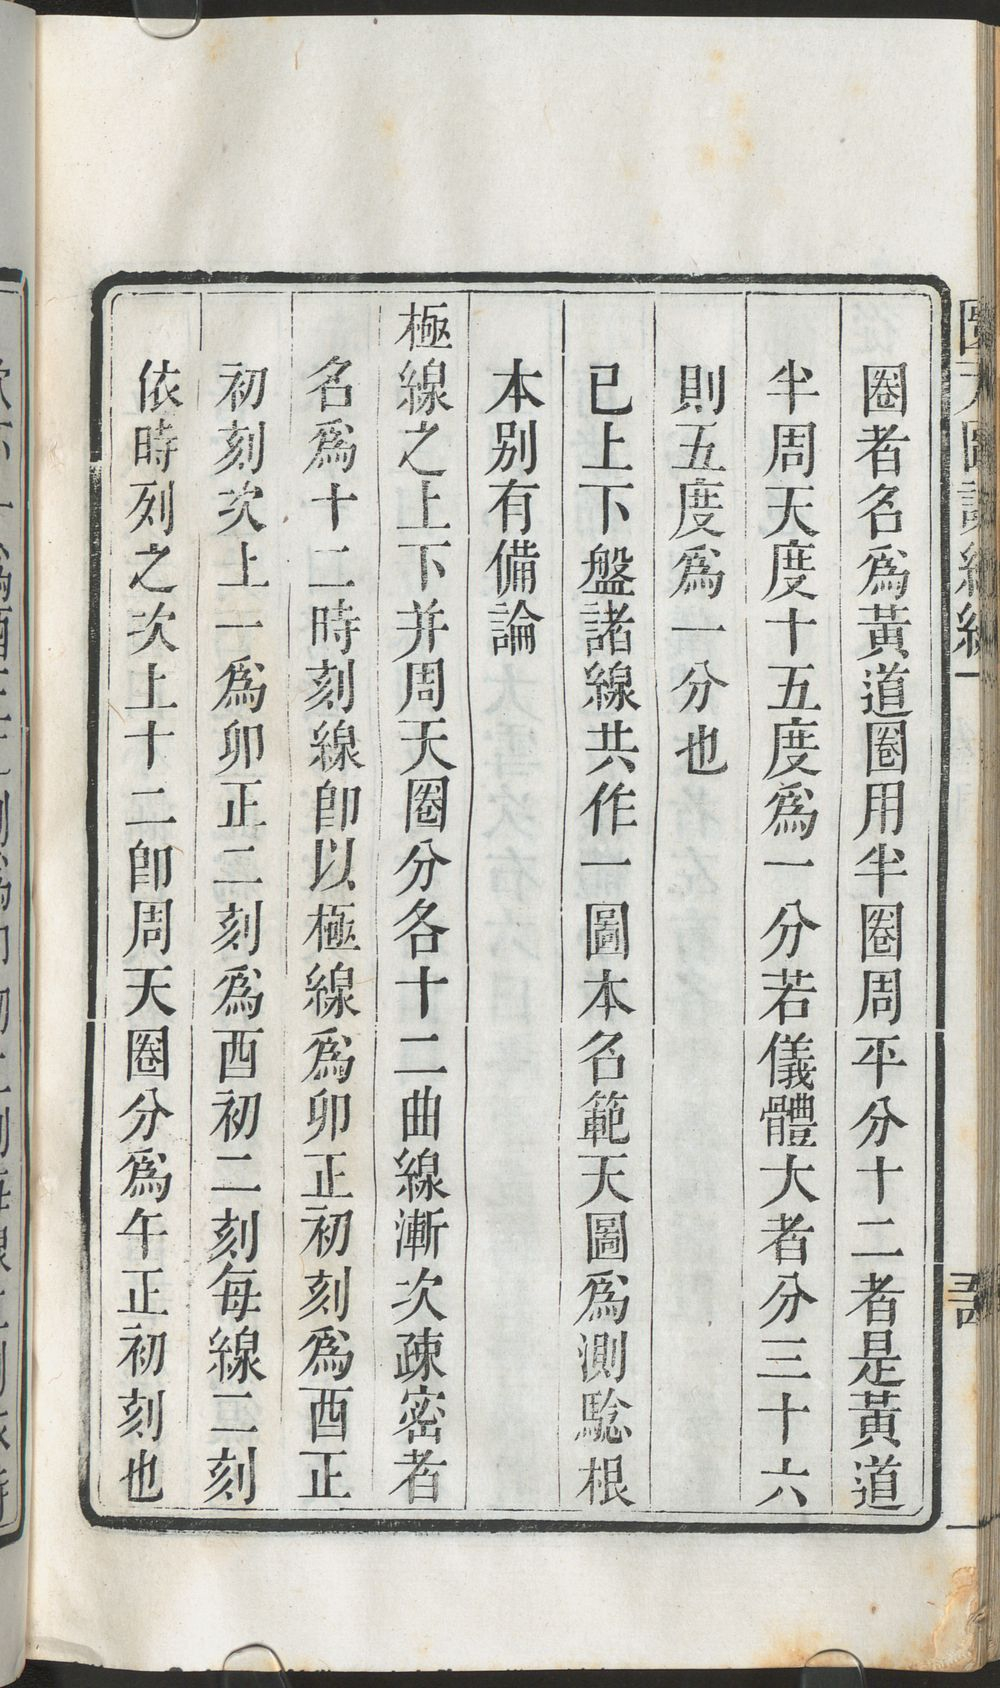 圈者名爲黃道圈用半圈周平分十二者是黃道
半周天度十五度爲一分若儀體大者分三十六
則五度爲一分也
已上下盤諸線共作一圖本名範天圖爲測驗根
本别有備論
極線之上下并周天圈分各十二曲線漸次疎密者
名爲十二時刻線卽以極線爲卯正初刻爲酉正
初刻次上一爲卯正二刻爲酉初二刻每線二刻
依時列之次上十二卽周天圈分爲午正初刻也